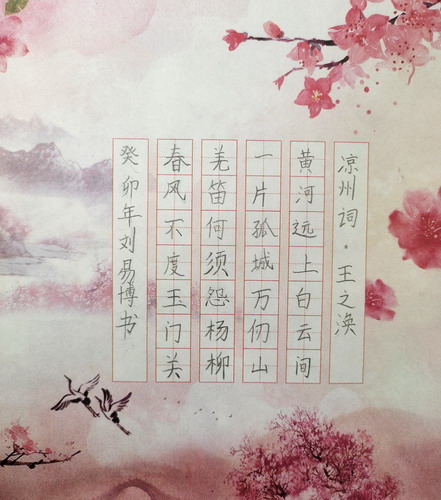 凉州词·王之涣
黄河远上白云间
一片孤城万仞山
羌笛何须怨杨柳
春风不度玉门关
癸卯年刘易博书